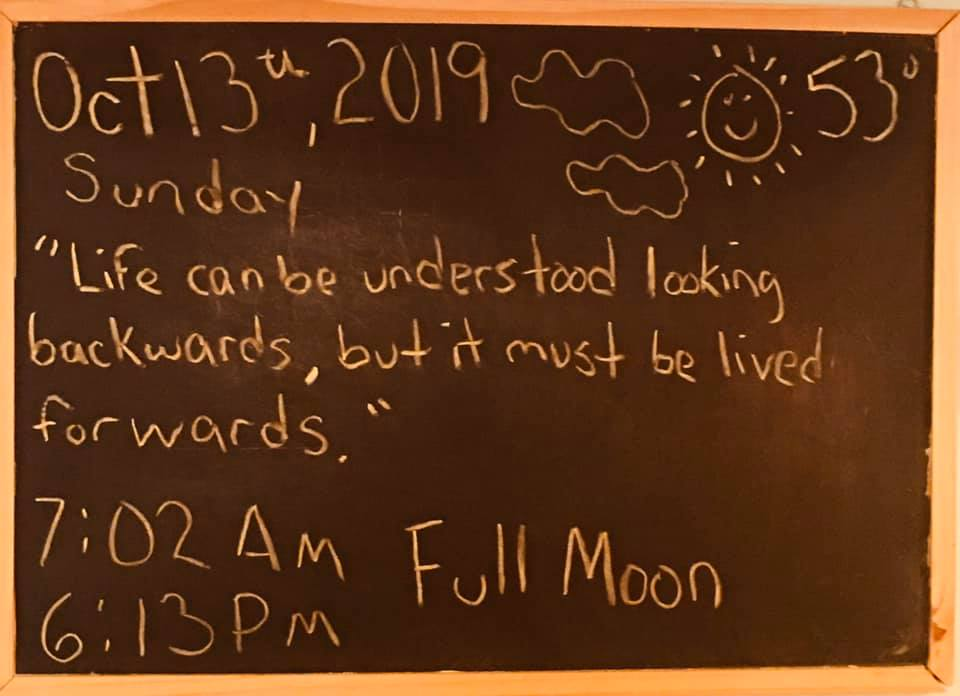 Oct 13th, 2019 53°
Sunday
"Life can be understood looking
backwards, but it must be lived
forwards."
7:02 AM Full Moon
6:13 PM